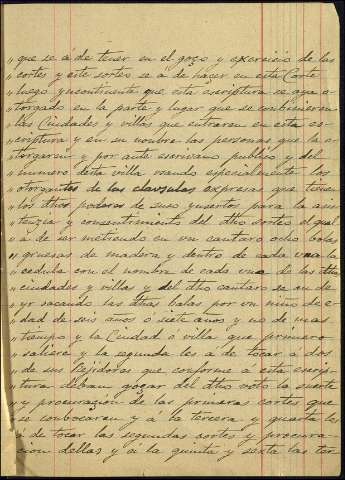 " que se á de tener en el goço y exercicio de las
" cortes y este sorteo se á de haçer en esta Corte
" luego yncontinenta que esta escriptura se aya o-
" torgado en la parte y lugar que se conbinieren
" las Ciudades y villas que entraren en esta es-
" criptura y en su nombre las personas que la o-
" torgaren y por ante escrivano publico y del
" numero desta villa usando especialmente los
" otorgantes de las clausulas expresas que tienen
" los dhos poderes de suso ynsertos para la
" y consentimiento del dho sorteo el qual
" á de ser metiendo en un cantaro ocho bolas
" gruesas de madera y dentro de cada una la
" cedula con el nombre de cada una de las dhas
" ciudades y villas y del dho cantaro se an de
" yr sacando las dhas bolas por un niño de e-
" dad de seis años o siete años y no de mas
" tiempo y la Ciudad o villa que primero
" saliere y la segunda les á de tocar á dos
" de sus Rejidores que conforme á esta escrip-
" tura deban goçar del dho voto la suerte
" y procuracion de las primeras cortes que
" se conbocaren y á la tercera y quarta les
" á de tocar las segundas cortes y procura-
" cion dellas y á la quinta y sexta las ter